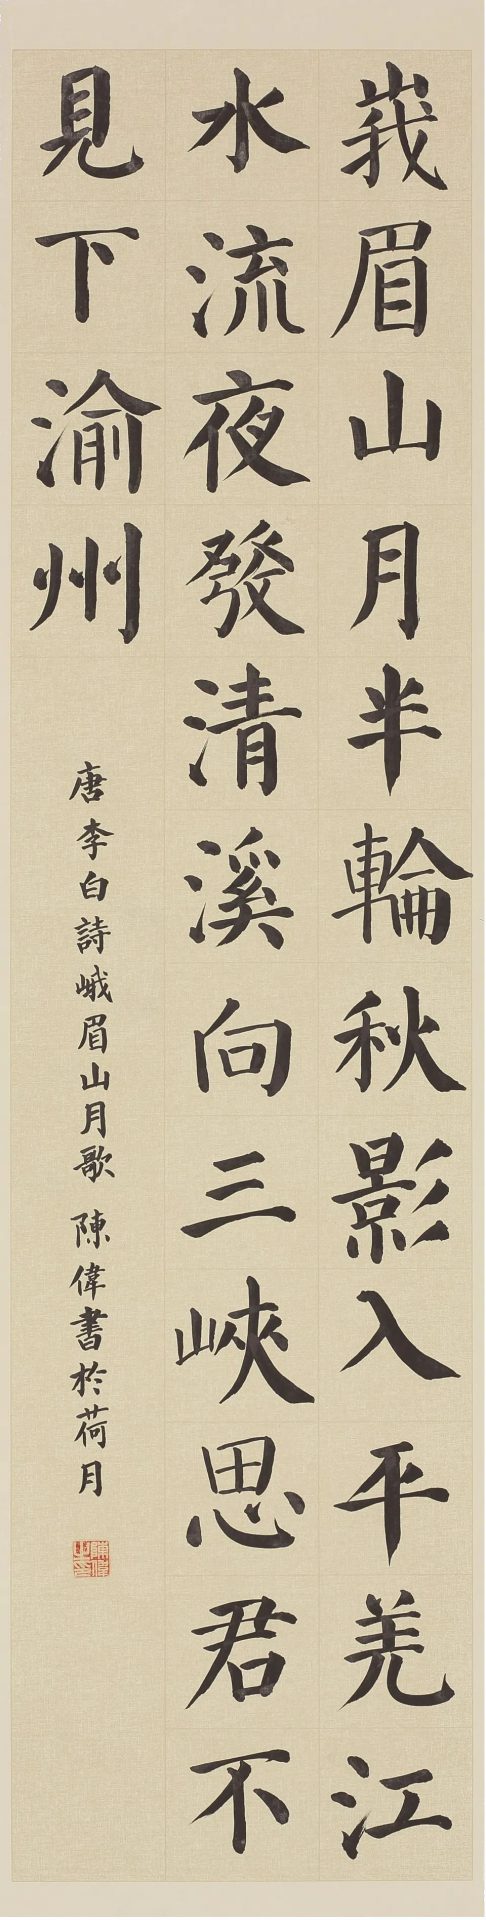 峩眉山月半輪秋影入平羌江
水流夜發清溪向三峽思君不
見下渝州
唐李白詩峨眉山月歌 陳偉書於荷月